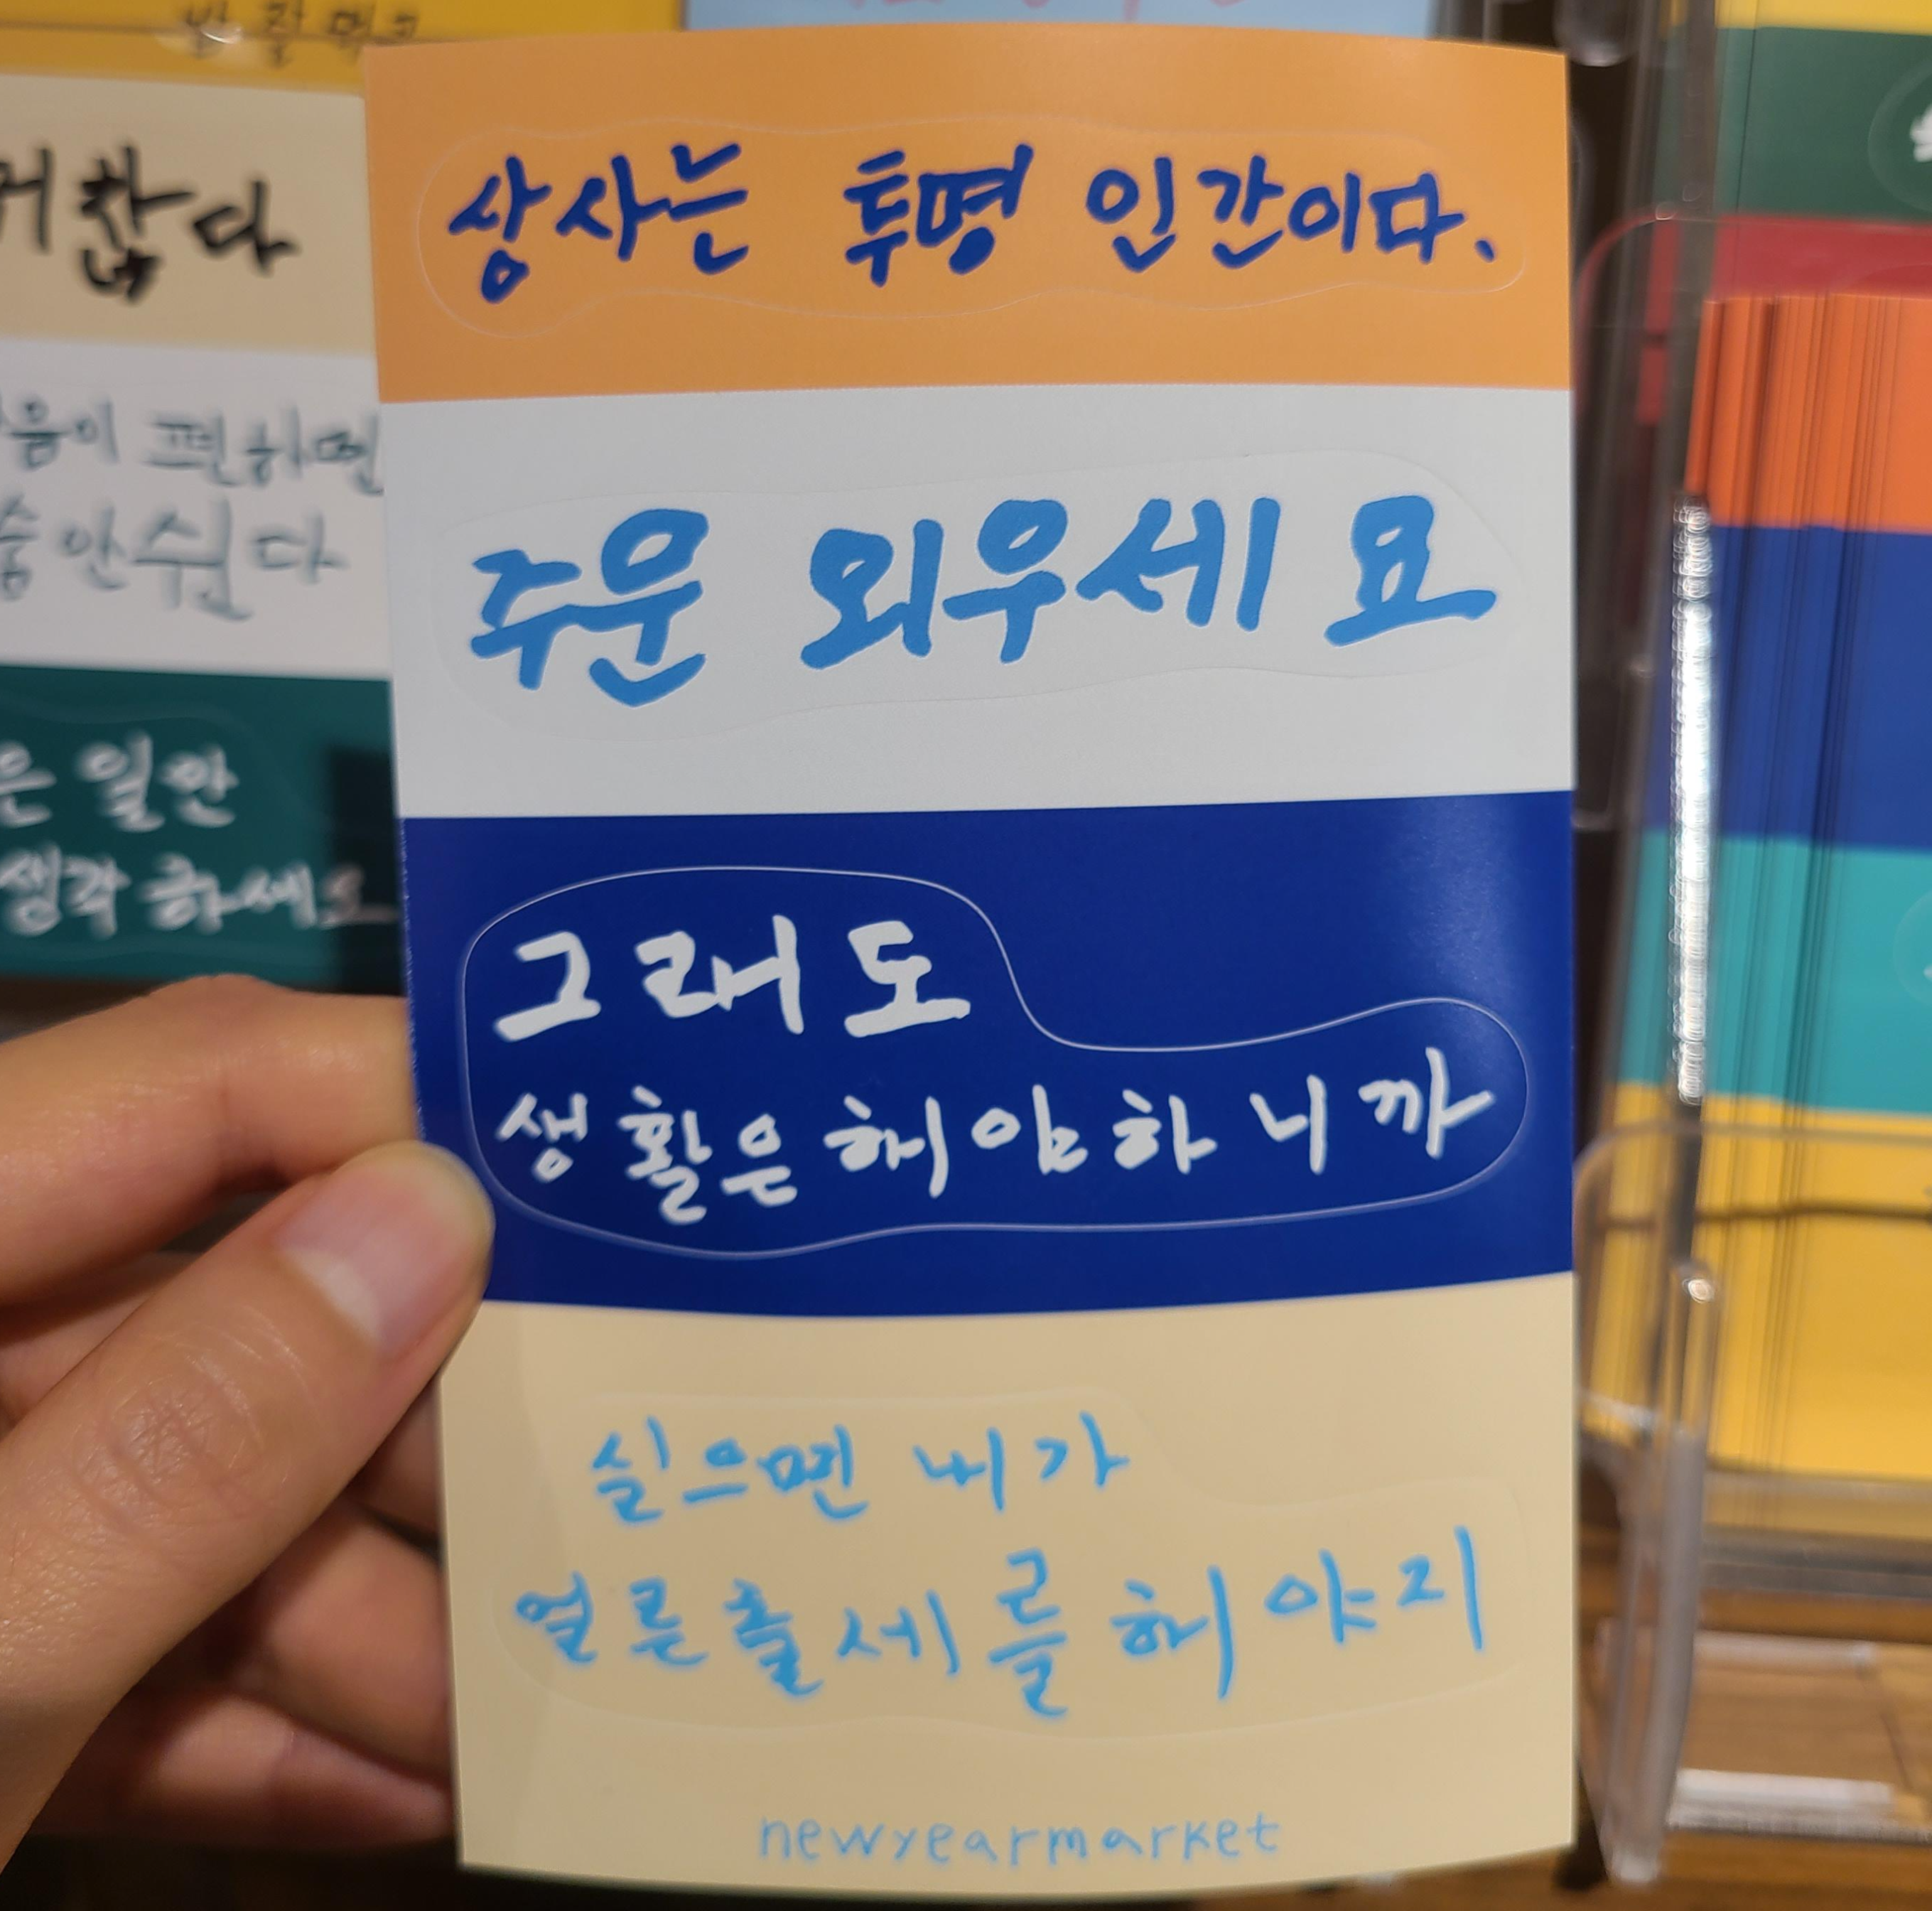 상사는 투명 인간이다.
주운 외우세요
그래도
생활은해야하니까
싫으면 내가
얼른출세를해야지
newyearmarket
편하면
안쉽다
일안
생각하세요